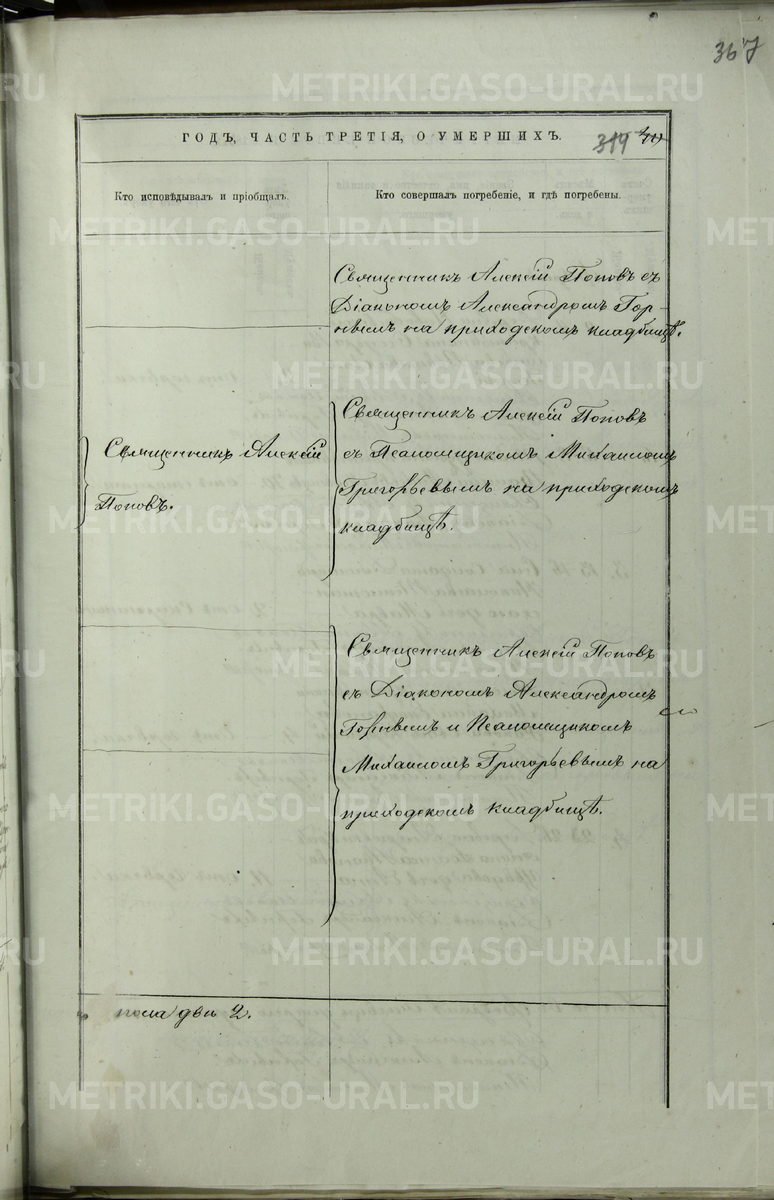 367
ГОДЪ, ЧАСТЬ ТРЕТІЯ, О УМЕРШИХЪ.
319
Кто исповѣдывалъ и пріобщалъ.
Кто совершалъ погребеніе, и гдѣ погребены.
Священникъ Алексій Поповъ съ
Діакономъ Александромъ Гор-
нымъ на приходскомъ кладбищѣ.
Священникъ Алексій
Поповъ.
Священникъ Алексій Поповъ
съ Псаломщикомъ Михаиломъ
Григорьевымъ на приходскомъ
кладбищѣ.
Священникъ Алексій Поповъ
съ Діакономъ Александромъ
Горнымъ и Псаломщикомъ
Михаиломъ Григорьевымъ на
приходскомъ кладбищѣ.
пола два 2.
METRIKI.GASO-URAL.RU